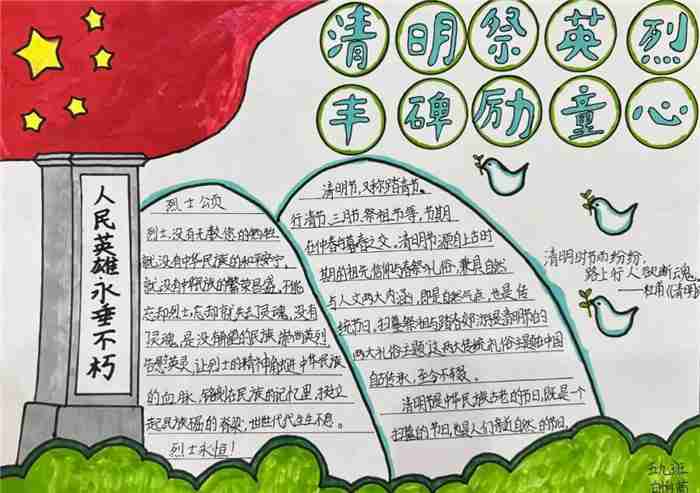 清明祭英烈
丰碑励童心
人民英雄永垂不朽
烈士颂
烈士,没有无数您的牺牲
就没有中华民族的和平安宁,
就没有中华民族的繁荣昌盛,不能
忘却烈士,忘却就失去了灵魂,没有
灵魂,是没有希望的民族,崇尚英烈,
告慰英灵,让烈士的精神融进中华民族
的血脉,镌刻在民族的记忆里,挺立
起民族强的脊梁,世世代代生生不息。
烈士永恒!
清明节,又称踏青节、
行清节、三月节、祭祖节等,节期
在仲春与暮春之交。清明节源自上古时
期的祖先信仰与春祭礼俗,兼具自然
与人文两大内涵,即是自然气点,也是传
统节日,扫墓祭祖与踏青郊游是清明节的
两大礼俗主题,这两大传统礼俗主题在中国
自古传承,至今不辍。
清明节是中华民族古老的节日,既是一个
扫墓的节日,也是人们亲近自然的节日,
清明时节雨纷纷,
路上行人欲断魂。
——杜甫《清明》
五九班